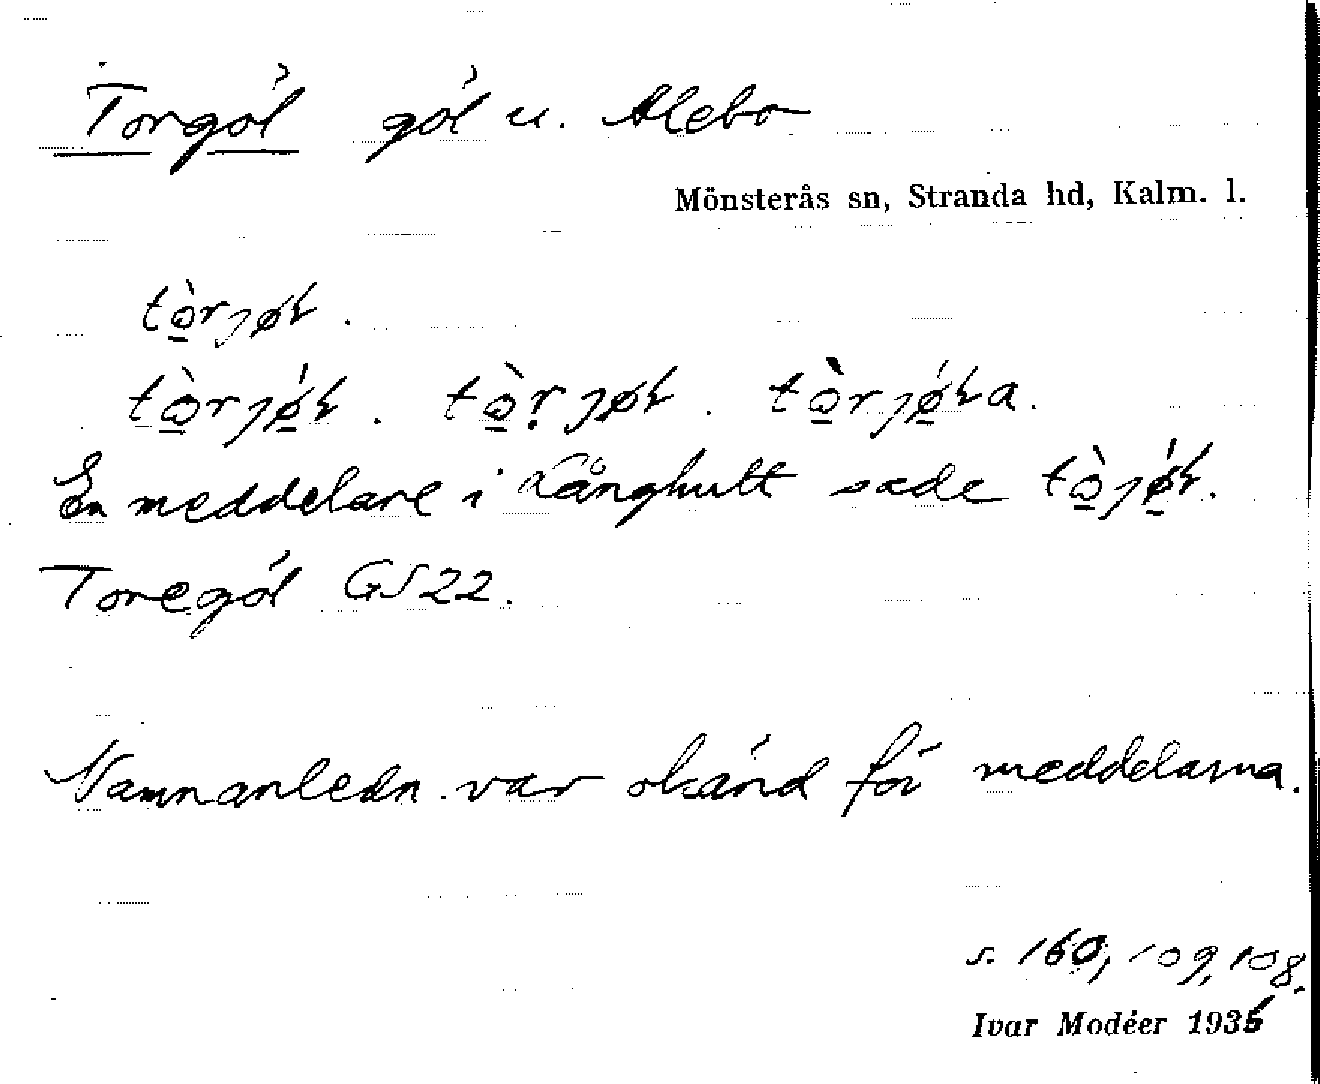 Torgöl göl u. Alebo
Mönsterås sn, Stranda hd, Kalm. l.
tò̱rȷøɫ.
tò̱rȷǿ̱ɫ. tò̱ṛȷøɫ. tò̱rȷǿ̱ɫa.
En meddelare i Långhult sade tò̱ȷǿ̱ɫ.
Toregöl GS22.
Namnanledn. var okänd för meddelarna.
s. 160, 109, 108.
Ivar Modéer 1935